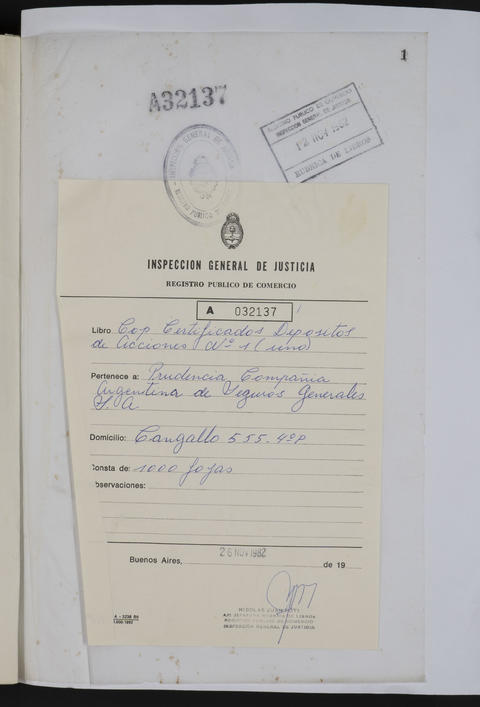 1
A32137
REGISTRO PUBLICO DE COMERCIO
INSPECCION GENERAL DE JUSTICIA
12 NOV 1982
RUBRICA DE LIBROS
INSPECCION GENERAL DE JUSTICIA
REGISTRO PUBLICO
INSPECCION GENERAL DE JUSTICIA
REGISTRO PUBLICO DE COMERCIO
A 032137
Libro Cop Certificados Depositos
de Acciones Nº 1 (uno)
Pertenece a: Prudencia Compañia
Argentina de Seguros Generales
S. A
Domicilio: Cangallo 555. 4º P
Consta de: 1000 fojas
Observaciones:
Buenos Aires, 26 NOV 1982 de 19
NICOLAS JUAN
REGISTRO PUBLICO DE COMERCIO
INSPECCION GENERAL DE JUSTICIA